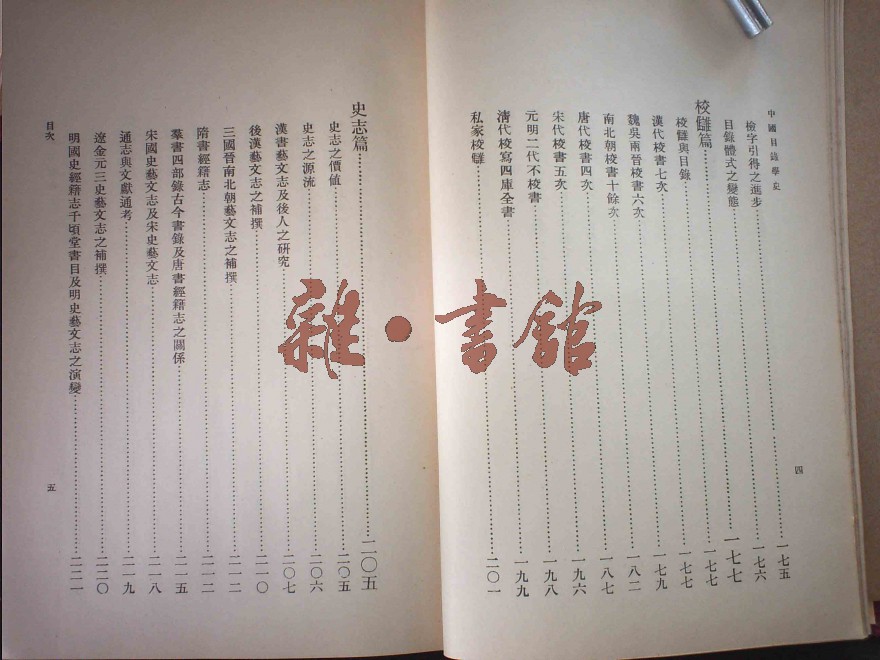 中國目錄學史
檢字引得之進步……一七五
目錄體式之變態……一七六
校讎篇……一七七
校讎與目錄……一七七
漢代校書七次……一七九
魏吳兩晉校書六次……一八二
南北朝校書十餘次……一八七
唐代校書四次……一九六
宋代校書五次……一九八
元明二代不校書……一九九
清代校寫四庫全書
私家校讎……二〇一
四
史志篇……二〇五
史志之價値……二〇五
史志之源流……二〇六
漢書藝文志及後人之研究……二〇七
後漢藝文志之補撰……二一〇
三國晉南北朝藝文志之補撰……二一二
隋書經籍志……二一二
羣書四部錄古今書錄及唐書經籍志之關係……二一五
宋國史藝文志及宋史藝文志……二一八
通志與文獻通考……二一九
遼金元三史藝文志之補撰……二二〇
明國史經籍志千頃堂書目及明史藝文志之演變……二二一
目次
五
雜·書館